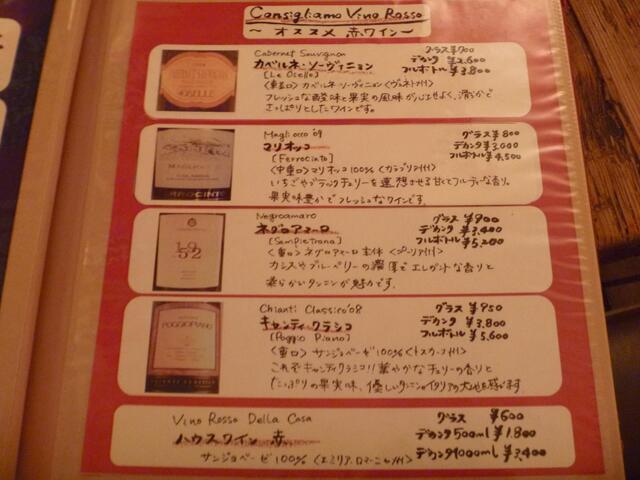 Consigliamo Vino Rosso
～オススメ 赤ワイン～
Cabernet Sauvignon
グラス ¥700
カベルネ・ソーヴィニョン
デカンタ ¥2,600
[Le Oselle]
フルボトル ¥3,800
カベルネ・ソーヴィニョン
フレッシュな酸味と果実の風味が心地よく、滑らかで
さっぱりとしたワインです。
Magliocco '09
グラス ¥800
マリオッコ
デカンタ ¥3,000
[Ferrocinto]
フルボトル ¥4,500
〈中重口〉マリオッコ 100% 〈カラブリア州〉
いちごやブラックチェリーを連想させる甘くてフルーティーな香り。
果実味豊かでフレッシュなワインです。
Negroamaro
グラス ¥900
ネグロアマーロ
デカンタ ¥3,400
[Sampietrana]
フルボトル ¥5,200
〈重口〉ネグロアマーロ主体 〈プーリア州〉
カシスやブルーベリーの濃厚でエレガントな香りと
柔らかいタンニンが魅力です。
Chianti Classico '08
グラス ¥950
キャンティ クラシコ
デカンタ ¥3,800
[Poggio Piano]
フルボトル ¥5,600
〈重口〉サンジョベーゼ 100% 〈トスカーナ州〉
これぞキャンティクラシコ!!華やかなチェリーの香りと
たっぷりの果実味、優しいタンニンがイタリアの大地を感じます
POGGIOPIANO
Vino Rosso Della Casa
グラス ¥600
ハウスワイン 赤
デカンタ500ml ¥1,800
サンジョベーゼ 100% 〈エミリア.ロマーニャ州〉
デカンタ1000ml ¥3,400